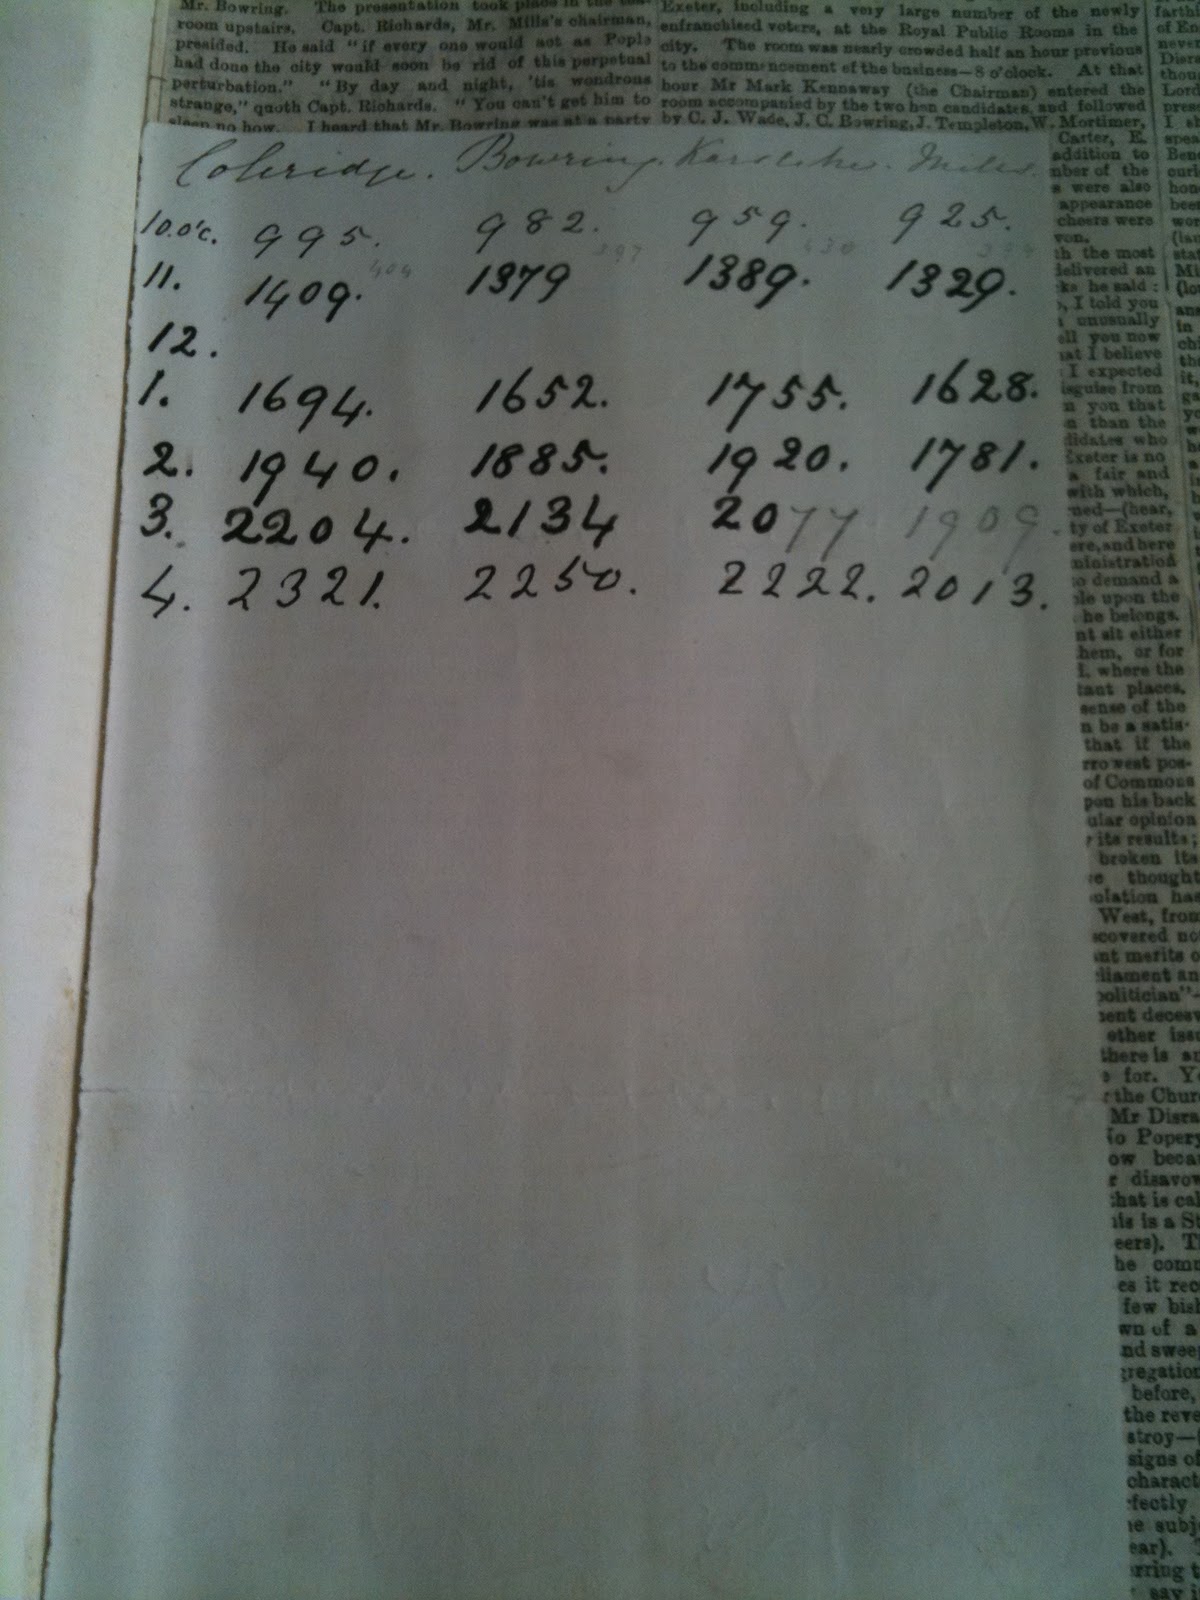 Mr. Bowring. The presentation took place in the
room upstairs, Capt. Richards, Mr. Mills's chairman,
presided. He said "if every one would act as Pople
had done the city would soon be rid of this perpetual
perturbation." "By day and night, 'tis wondrous
strange," quoth Capt. Richards. "You can't get him to
sleep no how. I heard that Mr. Bowring was at a party
Exeter, including a very large number of the newly
enfranchised voters, at the Royal Public Rooms in the
city. The room was nearly crowded half an hour previous
to the commencement of the business—8 o'clock. At that
hour Mr Mark Kennaway (the Chairman) entered the
room accompanied by the two hon candidates, and followed
by C. J. Wade, J. C. Bowring, J. Templeton, W. Mortimer,
Coleridge. Bowring. Karslake. Mills.
10.o'c. 995. 982. 959. 925.
409 397 430
11. 1409. 1379 1389. 1329.
12.
1. 1694. 1652. 1755. 1628.
2. 1940. 1885. 1920. 1781.
3. 2204. 2134 2077 1909.
4. 2321. 2250. 2222. 2013.
Carter, E.
addition to
mber of the
s were also
appearance
cheers were
von.
th the most
delivered an
ks he said :
, I told you
unusually
ell you now
at I believe
I expected
isguise from
n you that
n than the
didates who
Exeter is no
a fair and
with which,
ned—(hear,
ty of Exeter
ere, and here
ministration
to demand a
ple upon the
he belongs.
nt sit either
hem, or for
l, where the
tant places.
sense of the
n be a satis-
that if the
rrowest pos-
of Commons
pon his back
ular opinion
its results;
broken its
thought
olation has
West, from
scovered no
nt merits o
liament an
politician"
sent deceav
other issu
there is an
for. Y
the Chur
Mr Disra
No Popery
ow beca
disavow
that is cal
is is a St
eers). T
he com
es it rec
few bish
wn of a
nd sweep
gregation
before,
the reve
stroy—
signs of
charact
rfectly
he subj
ear).
rring t
say i